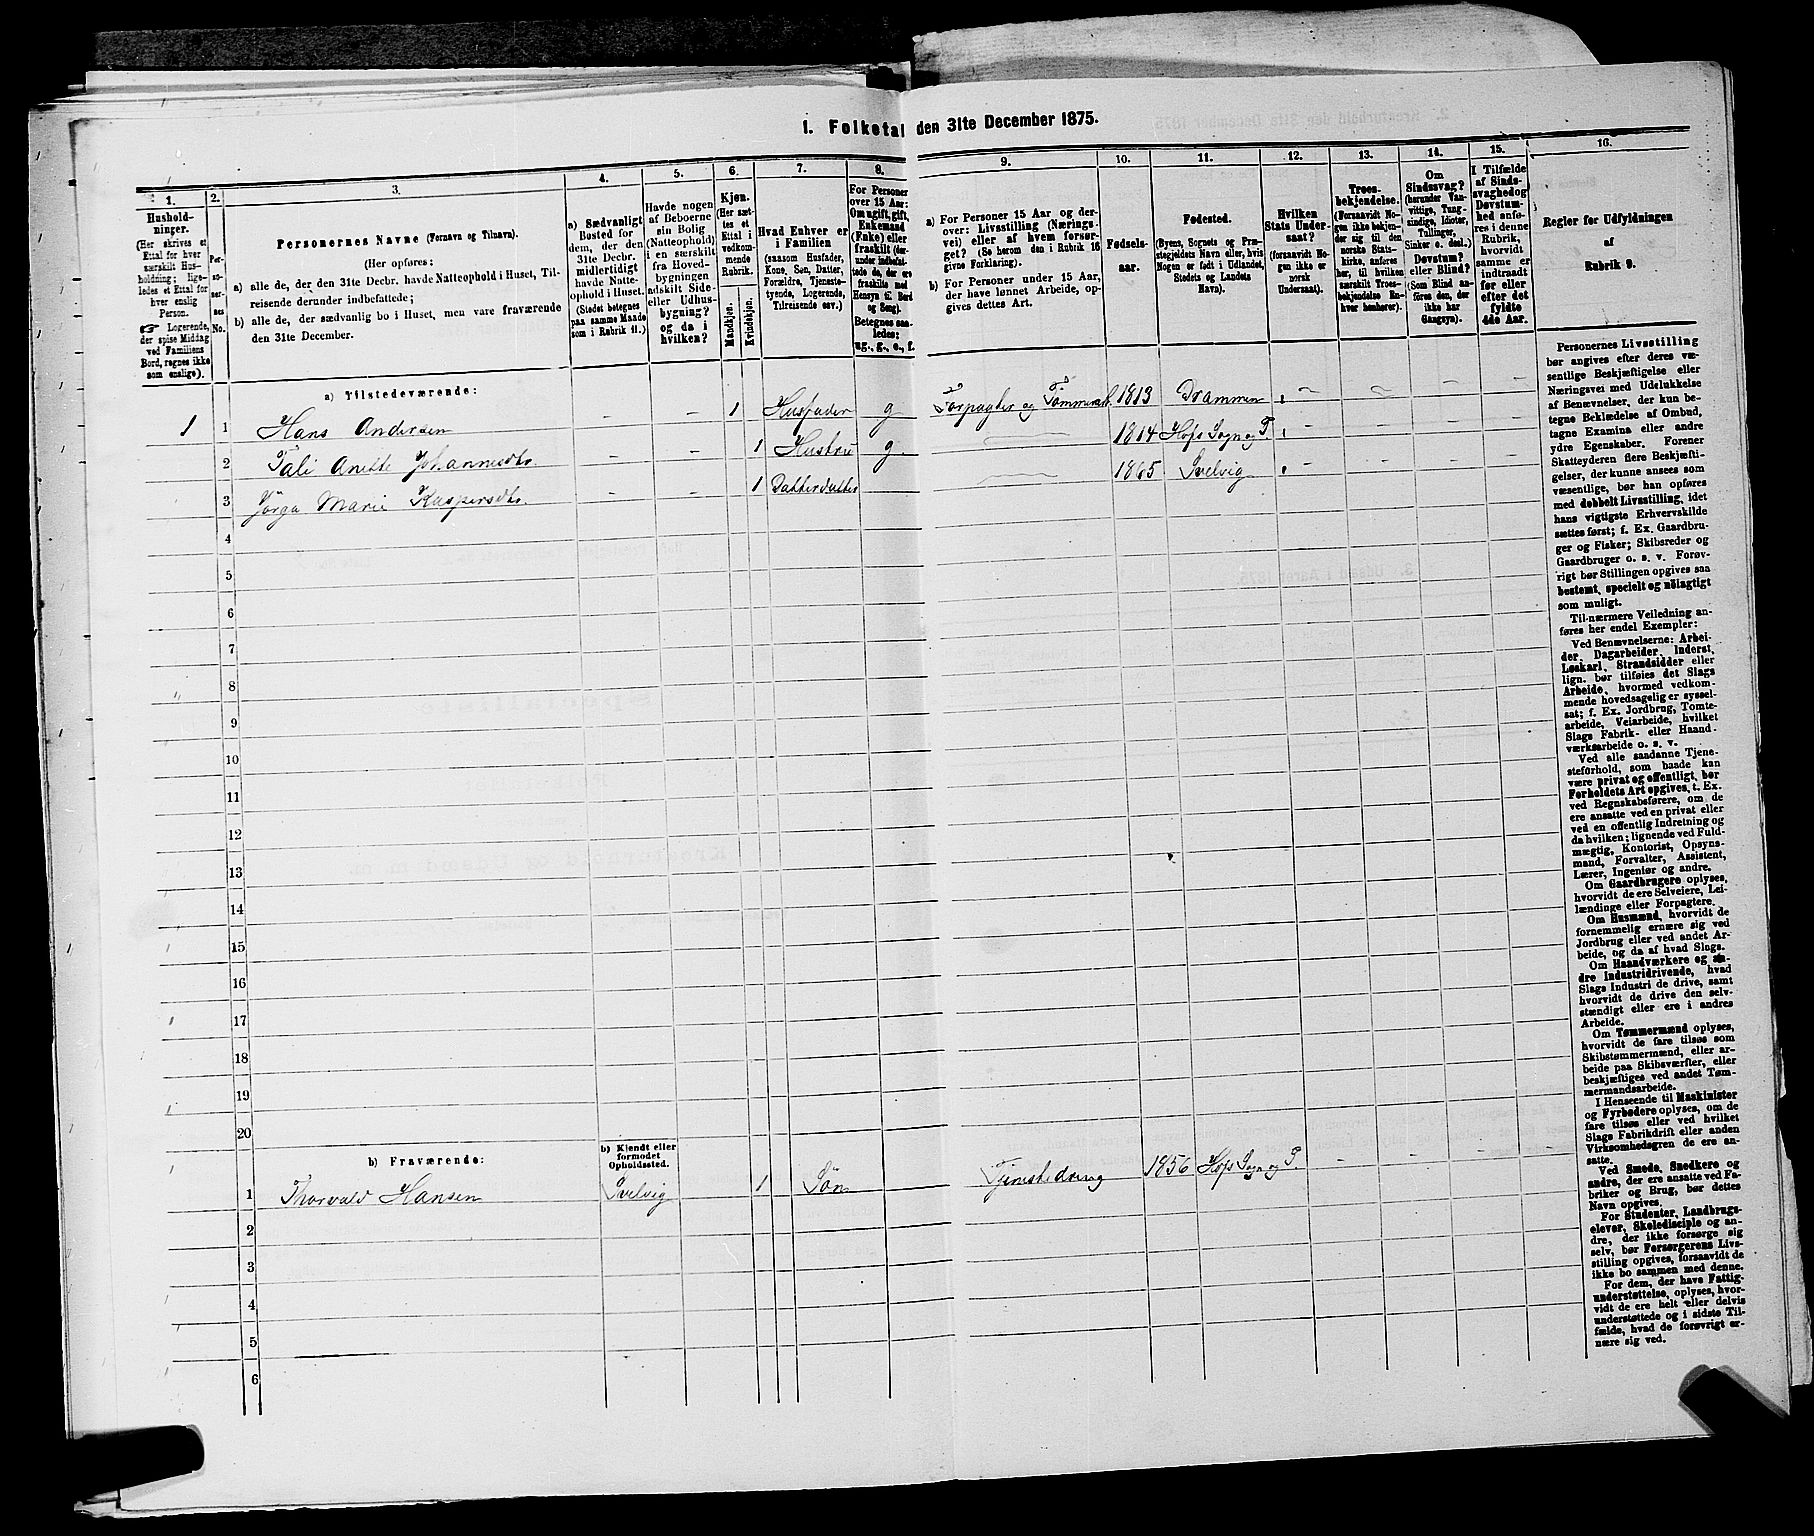 1. Folketal den 31te December 1875.
1.
Hushold-
ninger.
(Her skrives et
Ettal for hver
særskilt Hus-
holdning; lige-
ledes et Ettal for
hver enslig
Person.
☞ Logerende,
der spise Middag
ved Familiens
Bord, regnes ikke
som enslige).
2.
Per-
so-
ner-
nes
No.
3.
Personernes Navne (Fornavn og Tilnavn).
(Her opføres:
a) alle de, der den 31te Decbr. havde Natteophold i Huset, Til-
reisende derunder indbefattede;
b) alle de, der sædvanlig bo i Huset, men vare fraværende
den 31te December.
4.
a) Sædvanligt
Bosted for
dem, der den
31te Decbr.
midlertidigt
havde Natte-
ophold i Huset.
(Stedet betegnes
paa samme Maade
som i Rubrik 11.)
5.
Havde nogen
af Beboerne
sin Bolig
(Natteophold)
i en særskilt
fra Hoved-
bygningen
adskilt Side-
eller Udhus-
bygning?
og da i
hvilken?
6.
Kjøn.
(Her sæt-
tes et
Ettal i
vedkom-
mende
Rubrik.
Mandkjøn.
Kvindekjøn.
7.
Hvad Enhver er
i Familien
(saasom Husfader,
Kone, Søn, Datter,
Forældre, Tjeneste-
tyende, Logerende,
Tilreisende osv.)
8.
For Personer
over 15 Aar:
Om ugift, gift,
Enkemand
(Enke) eller
fraskilt (der-
under indbefat-
tede de, der ere
fraskilte med
Hensyn til Bord
og Seng).
Betegnes saa-
ledes:
ug., g., e., f.
9.
a) For Personer 15 Aar og der-
over: Livsstilling (Nærings-
vei) eller af hvem forsør-
get? (Se herom den i Rubrik 16
givne Forklaring).
b) For Personer under 15 Aar,
der have lønnet Arbeide, op-
gives dettes Art.
10.
Fødsels-
aar.
11.
Fødested.
(Byens, Sognets og Præ-
stegjeldets Navn eller, hvis
Nogen er født i Udlandet,
Stedets og Landets
Navn).
12.
Hvilken
Stats Under-
saat?
(forsaavidt No-
gen ikke er
norsk
Undersaat).
13.
Troes-
bekjendelse.
(Forsaavidt No-
gen ikke bekjen-
der sig til den
norske Stats-
kirke, anføres
her, til hvilken
særskilt Troes-
bekjendelse En-
hver henhører).
14.
Om
Sindssvag?
(herunder Van-
vittige, Tung-
sindige, Idioter,
Sinker o. desl.)
Døvstum?
eller Blind?
(Som Blind an-
føres den, der
ikke har
Gangsyn).
15.
I Tilfælde
af Sinds-
svaghed og
Døvstum-
hed anfø-
res i denne
Rubrik,
hvorvidt
samme er
indtraadt
før eller
efter det
fyldte
4de Aar.
16.
Regler for Udfyldningen
af
Rubrik 9.
a) Tilstedeværende:
1 1 Hans Andersen – – 1 Husfader g Forpagter og Tømmerm. 1813 Drammen – – – –
2 Tali Anette Johannesdtr. – – 1 Hustru g. 1814 Hofs Sogn og P. – – – –
3 Jörga Marie Kaspersdtr. – – 1 Datterdatter 1865 Svelvig – – –
4
5
6
7
8
9
10
11
12
13
14
15
16
17
18
19
20
b) Fraværende:
b) Kjendt eller
formodet
Opholdssted.
1 Thorvald Hansen Svelvig 1 Søn Tjenestedreng 1856 Hofs Sogn og P – – – –
2
3
4
5
6
Personernes Livsstilling
bør angives efter deres væ-
sentlige Beskjæftigelse eller
Næringsvei med Udelukkelse
af Benævnelser, der kun be-
tegne Beklædelse af Ombud,
tagne Examina eller andre
ydre Egenskaber. Forener
Skatteyderen flere Beskjæfti-
gelser, der kunne ansees som
væsentlige, bør han opføres
med dobbelt Livsstilling, idet
hans vigtigste Erhvervskilde
sættes først; f. Ex. Gaardbru-
ger og Fisker; Skibsreder og
Gaardbruger o. s. v. Forøv-
rigt bør Stillingen opgives saa
bestemt, specielt og nöiagtigt
som muligt.
Til nærmere Veiledning an-
føres her endel Exempler:
Ved Benævnelserne: Arbei-
der, Dagarbeider, Inderst,
Løskarl, Strandsidder eller
lign. bør tilføies det Slags
Arbeide, hvormed vedkom-
mende hovedsagelig er syssel-
sat; f. Ex. Jordbrug, Tomte-
arbeide, Veiarbeide, hvilket
Slags Fabrik- eller Haand-
værksarbeide o. s. v.
Ved alle saadanne Tjene-
steforhold, som baade kan
være privat og offentligt, bør
Forholdets Art opgives, t. Ex.
ved Regnskabsførere, om de
ere ansatte ved en privat eller
ved en offentlig Indretning og
da hvilken; lignende ved Fuld-
mægtig, Kontorist, Opsyns-
mand, Forvalter, Assistent,
Lærer, Ingeniør og andre.
Om Gaardbrugere oplyses,
hvorvidt de ere Selveiere, Lei-
lændinge eller Forpagtere.
Om Husmænd, hvorvidt de
fornemmelig ernære sig ved
Jordbrug eller ved andet Ar-
beide, og da af hvad Slags.
Om Haandværkere og an-
dre Industridrivende, hvad
Slags Industri de drive, samt
hvorvidt de drive den selv-
stændigt eller ere i andres
Arbeide.
Om Tømmermænd oplyses,
hvorvidt de fare tilsøs som
Skibstømmermænd, eller ar-
beide paa Skibsværfter, eller
beskjæftiges ved andet Tøm-
mermandsarbeide.
I Henseende til Maskinister
og Fyrbødere oplyses, om de
fare tilsøs eller ved hvilket
Slags Fabrikdrift eller anden
Virksomhedsgren de ere an-
satte.
Ved Smede, Snedkere og
andre, der ere ansatte ved Fa-
briker og Brug, bør dettes
Navn opgives.
For Studenter, Landbrugs-
elever, Skoledisciple og an-
dre, der ikke forsørge sig
selv, bør Forsørgerens Livs-
stilling opgives, forsaavidt de
ikke bo sammen med denne.
For dem, der have Fattig-
understøttelse, oplyses, hvor-
vidt de ere helt eller delvis
understøttede og i sidste Til-
fælde, hvad de forøvrigt er-
nære sig ved.